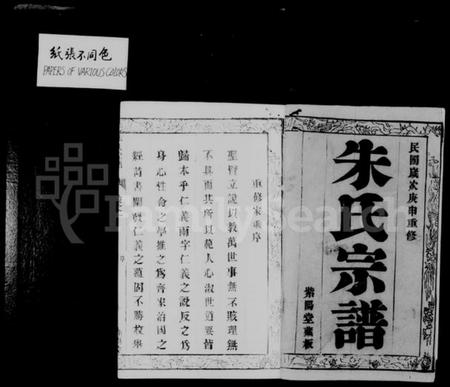 紙張不同色
PAPERS OF VARIOUS COLORS
民國歲次庚申重修
朱氏宗譜
紫陽堂藏板
重修家乘序
聖賢立說以教萬世事無不賅理無
不具而其所以範人心淑世道要皆
歸本乎仁義兩字仁義之說反之為
身心性命之學推之為齊家治國之
經尚書開陳仁義之道固不勝枚舉
FamilySearch